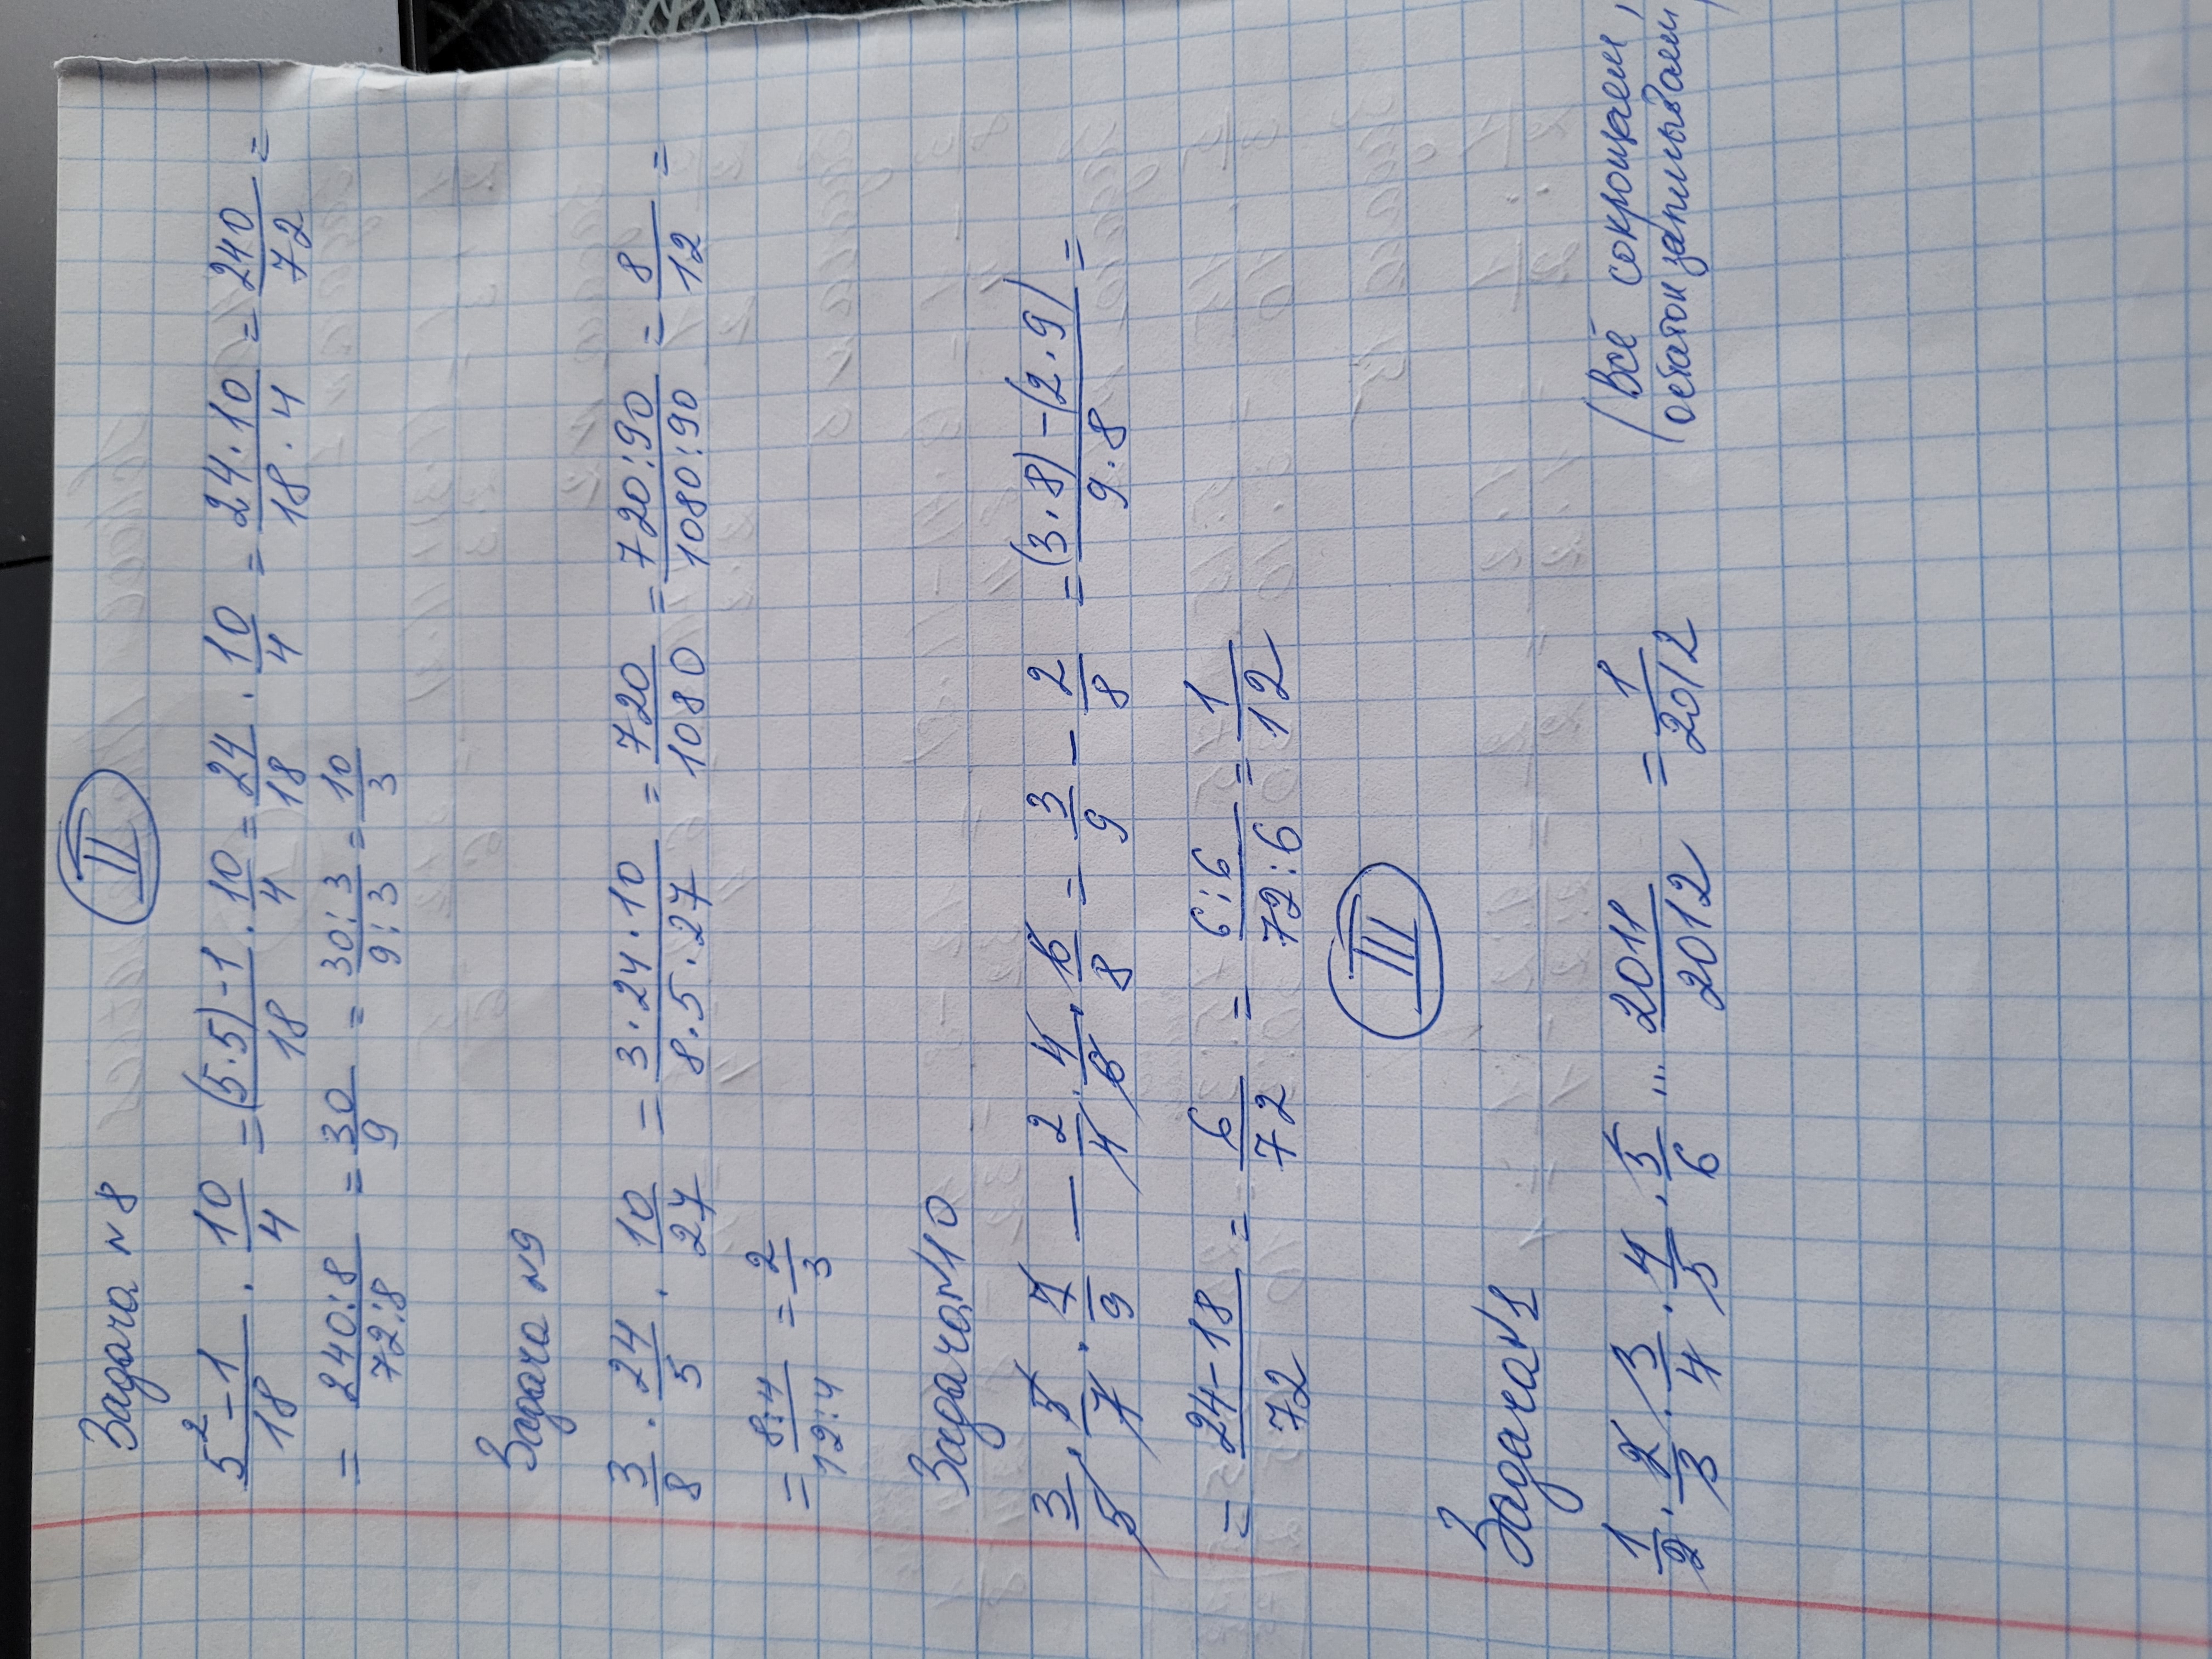 Задача №8
II
5² - 1 / 18 · 10/4 = (5·5) - 1 / 18 · 10/4 = 24/18 · 10/4 = 24·10 / 18·4 = 240/72 =
= 240:8 / 72:8 = 30/9 = 30:3 / 9:3 = 10/3
Задача №9
3/8 · 24/5 · 10/27 = 3·24·10 / 8·5·27 = 720/1080 = 720:90 / 1080:90 = 8/12 =
= 8:4 / 12:4 = 2/3
Задача №10
3/5 · 5/7 · 7/9 - 2/4 · 4/6 · 6/8 = 3/9 - 2/8 = (3·8) - (2·9) / 9·8 =
= 24-18 / 72 = 6/72 = 6:6 / 72:6 = 1/12
III
Задача №1
1/2 · 2/3 · 3/4 · 4/5 · 5/6 ... 2011/2012 = 1/2012 (Всё сокрощаем,
остаток записываем)